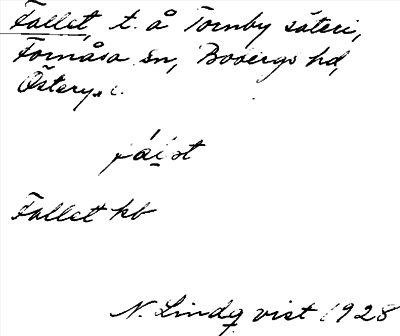 Fallet, t. å Tornby säteri,
Fornåsa sn, Bobergs hd,
Österg.

Fallet kb
N. Lindqvist 1928